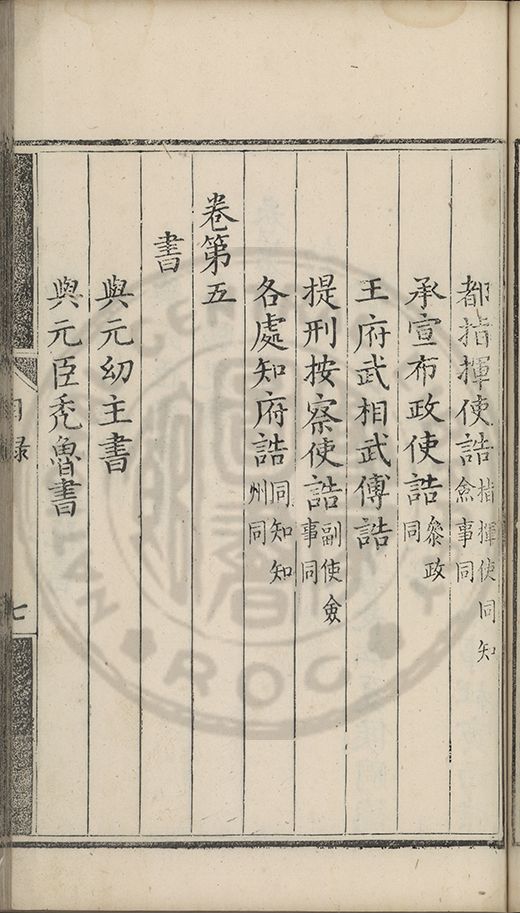 都指揮使誥 指揮使同知僉事同
承宣布政使誥 叅政同
王府武相武傅誥
提刑按察使誥 副使僉事同
各處知府誥 同知知州同
卷第五
書
與元幼主書
與元臣禿魯書
目録
七